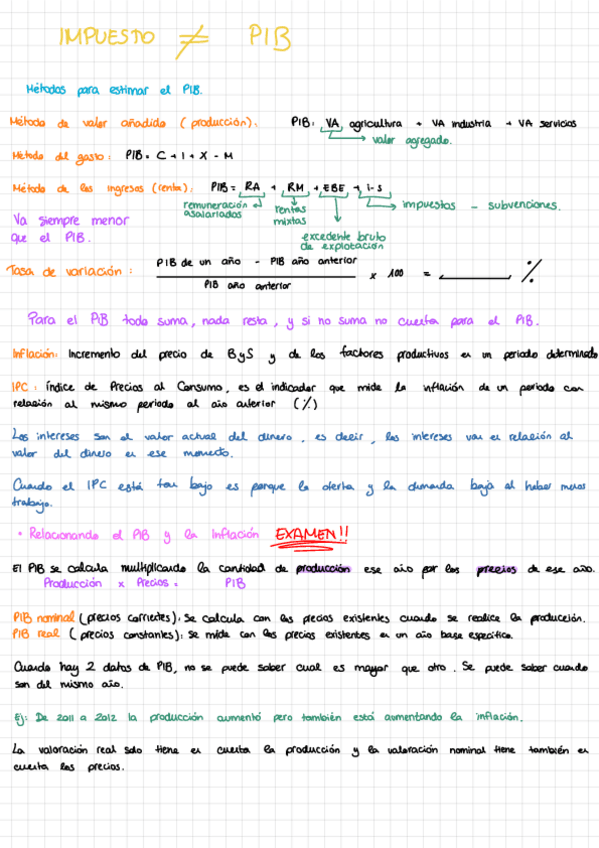 IMPUESTO ≠ PIB
Métodos para estimar el PIB.
Método de valor añadido (producción): PIB: VA agricultura + VA industria + VA servicios
valor agregado.
Método del gasto: PIB = C + I + X - M
Método de los ingresos (renta): PIB = RA + RM + EBE + I-S
remuneración asalariados
rentas mixtas
excedente bruto de explotación
impuestos - subvenciones.
Va siempre menor
que el PIB.
Tasa de variación: PIB de un año - PIB año anterior
PIB año anterior
x 100 = %
Para el PIB todo suma, nada resta, y si no suma no cuenta para el PIB.
Inflación: Incremento del precio de ByS y de los factores productivos en un periodo determinado
IPC: Índice de Precios al Consumo, es el indicador que mide la inflación de un periodo con
relación al mismo periodo al año anterior (%)
Los intereses son el valor actual del dinero, es decir, los intereses van en relación al
valor del dinero en ese momento.
Cuando el IPC está tan bajo es porque la oferta y la demanda baja al haber menos
trabajo.
• Relacionando el PIB y la Inflación EXAMEN!!
El PIB se calcula multiplicando la cantidad de producción ese año por los precios de ese año.
Producción x Precios = PIB
PIB nominal (precios corrientes): Se calcula con los precios existentes cuando se realice la producción.
PIB real (precios constantes): Se mide con los precios existentes en un año base específico.
Cuando hay 2 datos de PIB, no se puede saber cual es mayor que otro. Se puede saber cuando
son del mismo año.
Ej: De 2011 a 2012 la producción aumentó pero también está aumentando la inflación.
La valoración real solo tiene en cuenta la producción y la valoración nominal tiene también en
cuenta los precios.